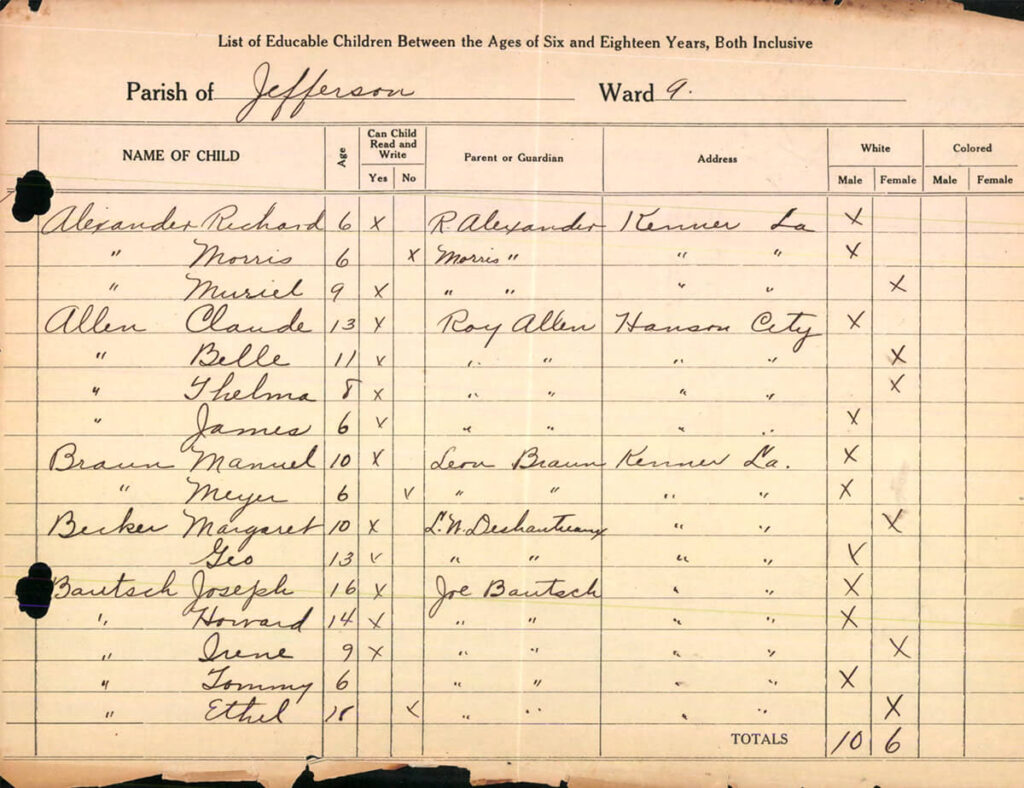 List of Educable Children Between the Ages of Six and Eighteen Years, Both Inclusive
Parish of Jefferson Ward 9.
NAME OF CHILD Age Can Child Read and Write Parent or Guardian Address White Colored
Yes No Male Female Male Female
Alexander Richard 6 x R. Alexander Kenner La x
" Morris 6 x Morris " " " x
" Muriel 9 x " " " " x
Allen Claude 13 x Roy Allen Hanson City x
" Belle 11 x " " " " x
" Thelma 8 x " " " " x
" James 6 x " " " " x
Braun Manuel 10 x Leon Braun Kenner La. x
" Meyer 6 x " " " " x
Becker Margaret 10 x L. W. " " x
Geo 13 x " " " " x
Bautsch Joseph 16 x Joe Bautsch " " x
" Howard 14 x " " " " x
" Irene 9 x " " " " x
" Tommy 6 " " " " x
" Ethel x " " " " x
TOTALS 10 6